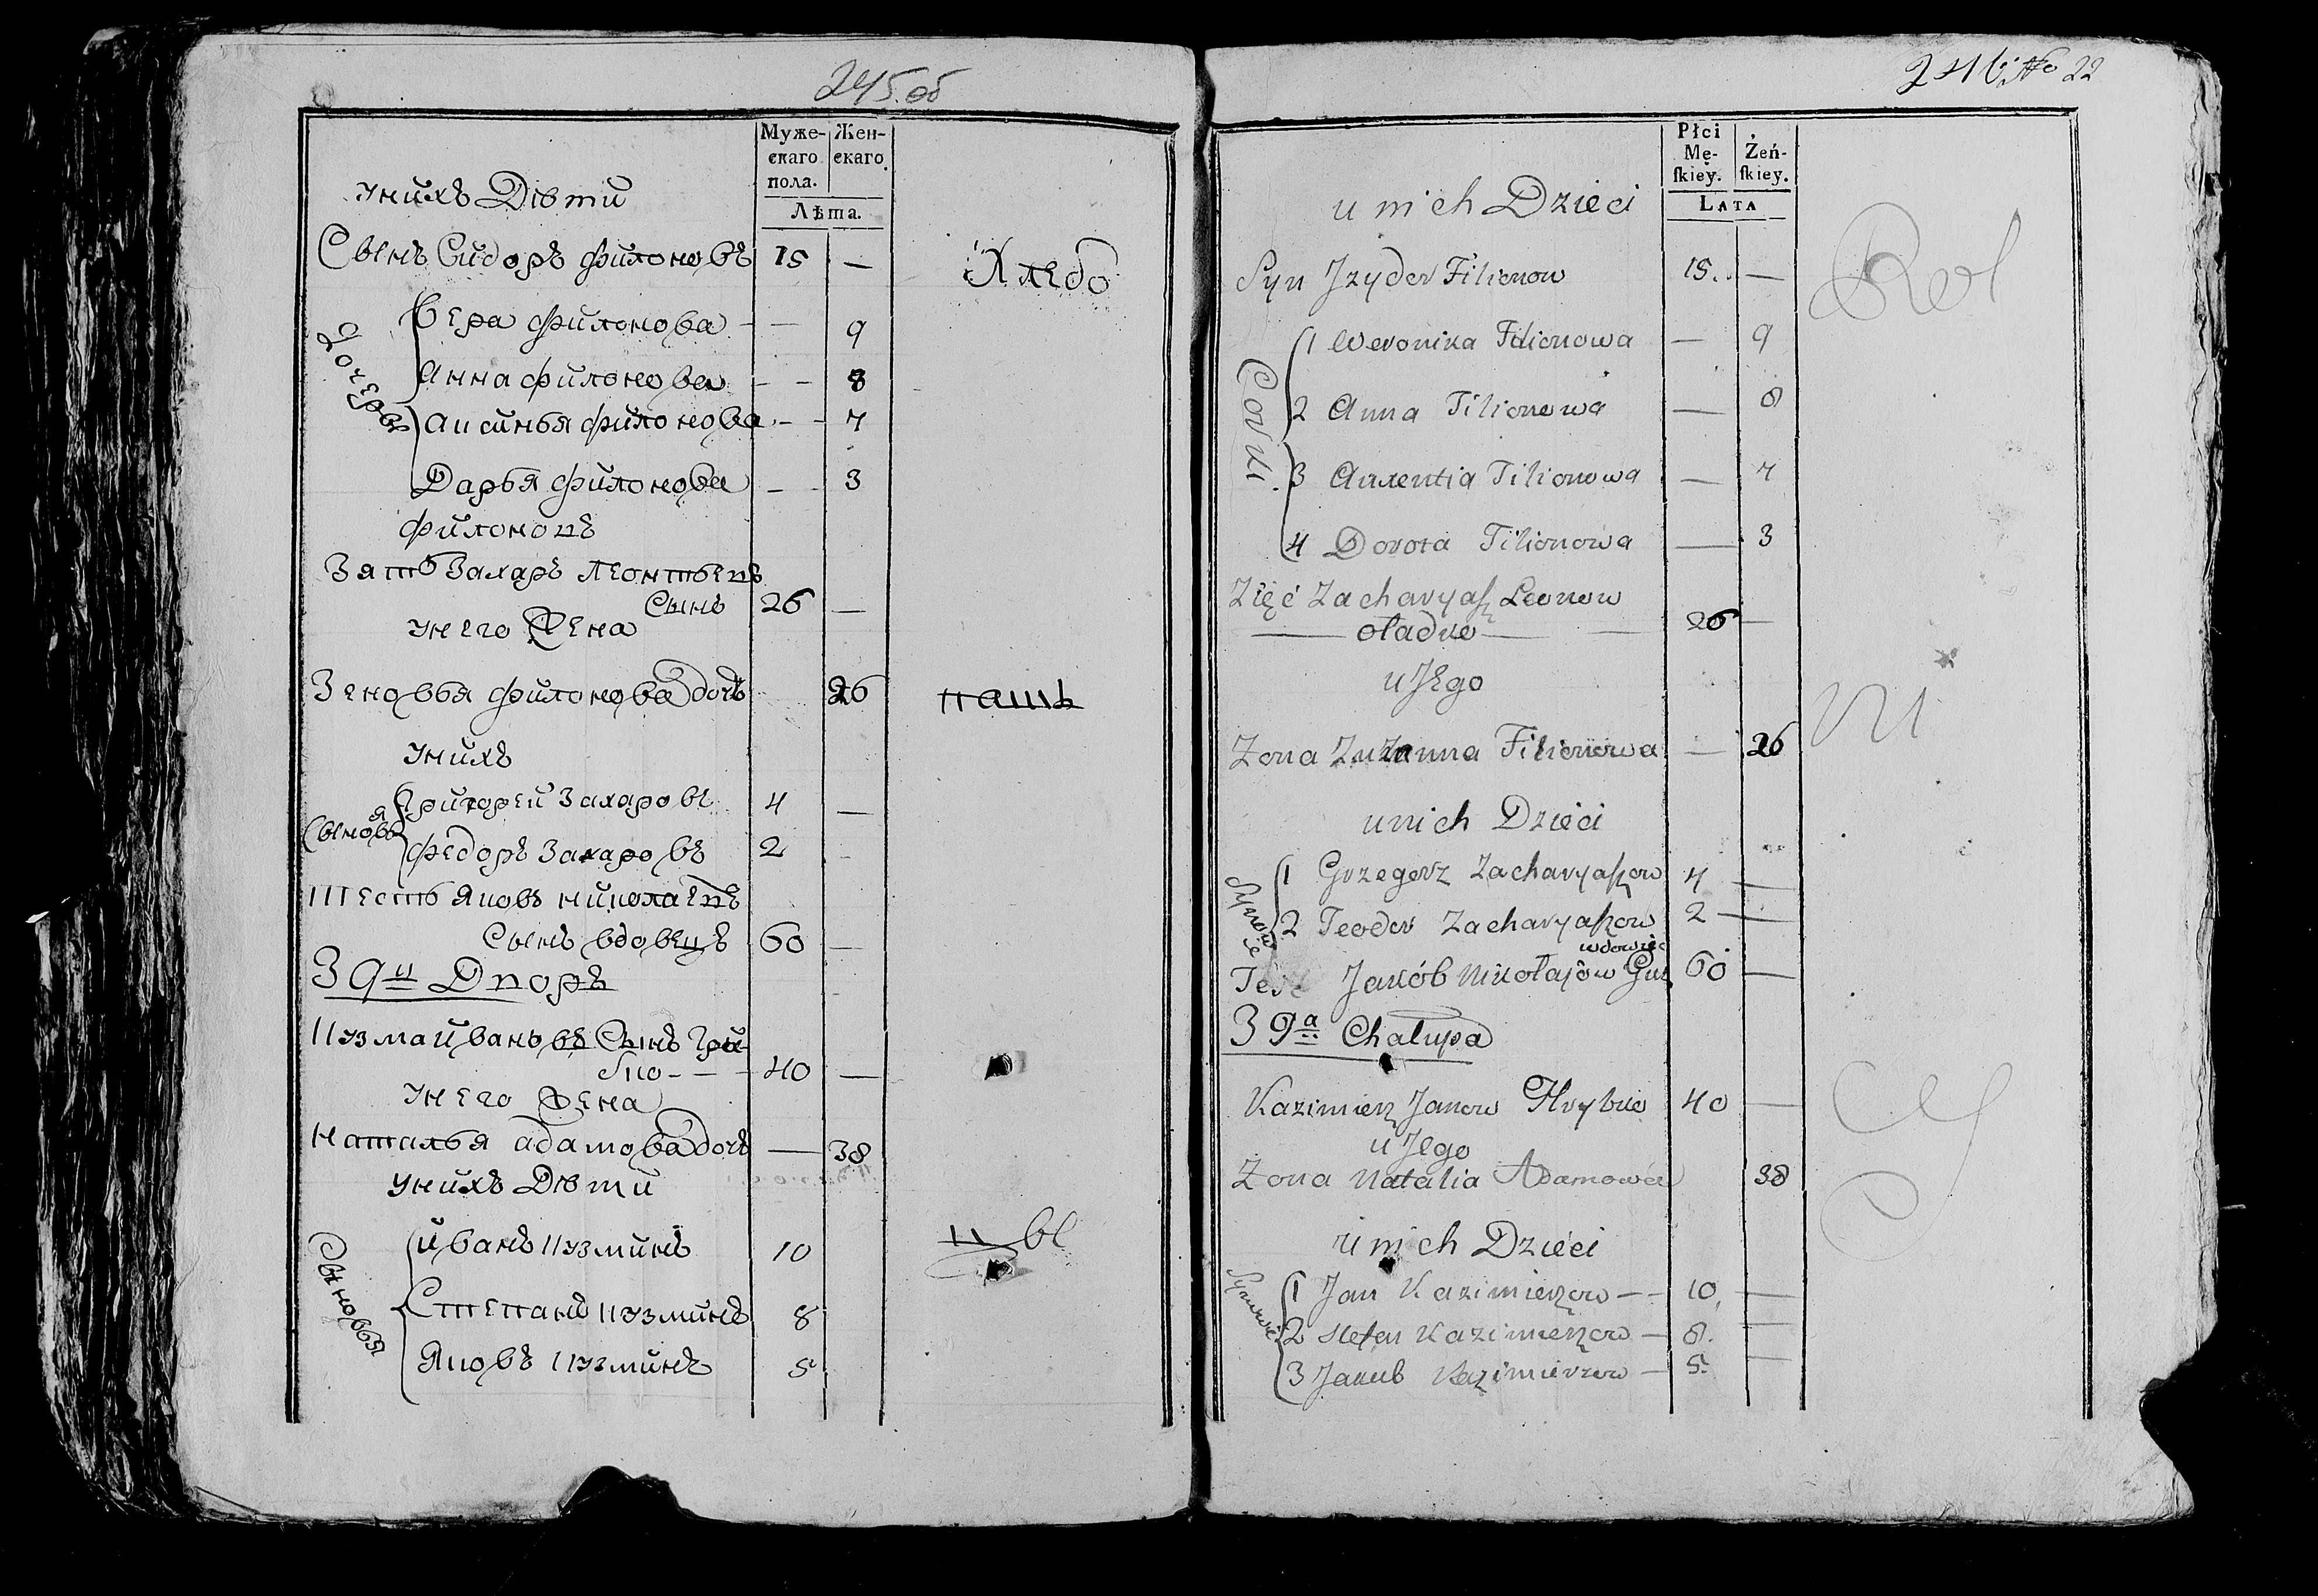 245.об
Муже-
скаго
пола.
Жен-
скаго
Лѣта.
унихъ Дѣти
Сынъ Сидоръ филоновъ 15 —
Дочеры
Вера филонова — 9
Анна филонова — — 8
Аксинья филонова — — 7
Дарья филонова — 3
филоновъ
Зять Захаръ леонтьевъ
Сынъ 26 —
унего Жена
Зеновья филонова дочь 26
унихъ
Сыновья
Григорей Захаровъ 4 —
федоръ Захаровъ 2 —
Тесть Яковъ николаевъ
Сынъ вдовецъ 60 —
39й Дворъ
Кузма йвановъ Сынъ Гри-
бко - — 40 —
унего Жена
наталья адамова дочь — 38
унихъ Дѣти
Сыновья
йванъ Кузминъ 10
Степанъ Кузминъ 8
Яковъ Кузминъ 5
Хлебо
пашъ
цы
246 No 22
Płci
Mę-
skiey.
Żeń-
skiey.
LATA
u nich Dzieci
Syn Jzydor Filionow 15. —
Corki
1 Weronika Filionowa — 9
2 Anna Filionowa — 8
3 Auxentia Filionowa — 7
4 Dorota Filionowa — 3
Zięć Zacharyasz Leonow
oładko 26 —
u Jego
Zona Zuzanna Filionowa — 26
unich Dzieci
Synowie
1 Grzegorz Zacharyaszow 4 —
2 Teodor Zacharyaszow 2 —
wdowiec
Teść Jakób Mikołajów 60 —
39a Chałupa
Kazimierz Janow Hrybko 40 —
u Jego
Zona Natalia Adamowa 38
u nich Dzieci
Synowie
1 Jan Kazimierzow — 10. —
2 Stefan Kazimierzow — 8. —
3 Jakub Kazimierzow — 5. —
Rol
ni
cy